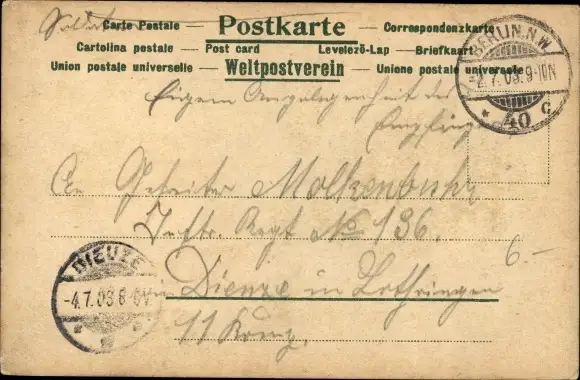 Carte Postale — Postkarte — Correspondenzkarte
Cartolina postale — Post card Levelezö-Lap — Briefkaart
Union postale universelle — Weltpostverein — Unione postale universale
BERLIN. N.W.
2.7.03.9-10N
* 40 c
Eigene Angelegenheit des
Empfängers
An Gefreiter Molkenbuhr
Inftr. Regt No 136.
6.-
in Dieuze in Lothringen
11 Komp.
DIEUZE
-4.7.03 8-9V